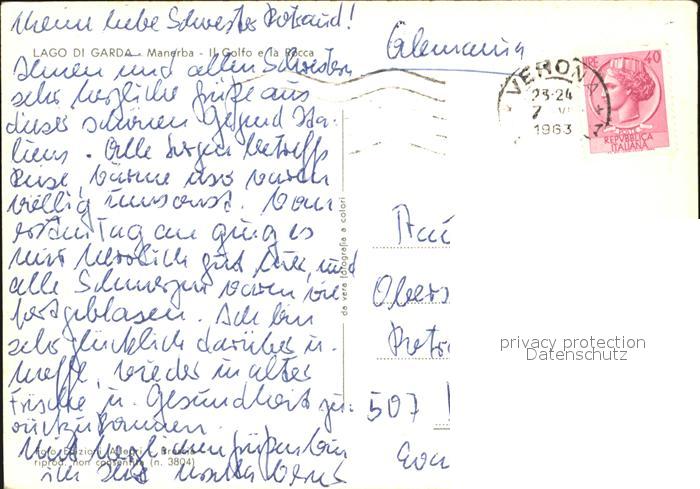 Meine liebe Schwester Rotraud!
LAGO DI GARDA - Manerba - Il Golfo e la Rocca
Ihnen und allen Schwestern
sehr herzliche Grüße aus
dieser schönen Gegend Ita-
liens. Alle Sorgen betreffs
Reise, Wärme usw waren
völlig umsonst. Vom
ersten Tag an ging es
mir herrlich gut hier, und
alle Schmerzen waren wie
fortgeblasen. Ich bin
sehr glücklich darüber u.
hoffe, wieder in alter
Frische u. Gesundheit zu-
rückzukommen.
Mit herzlichen Grüßen bin
ich Ihre
Foto Edizioni Brescia
riprod. non consentita (n. 3804)
da vera fotografia a colori
Alemania
VERONA
23-24
7 VI
1963
LIRE 40
POSTE
REPVBBLICA
ITALIANA
Obers
507
privacy protection
Datenschutz